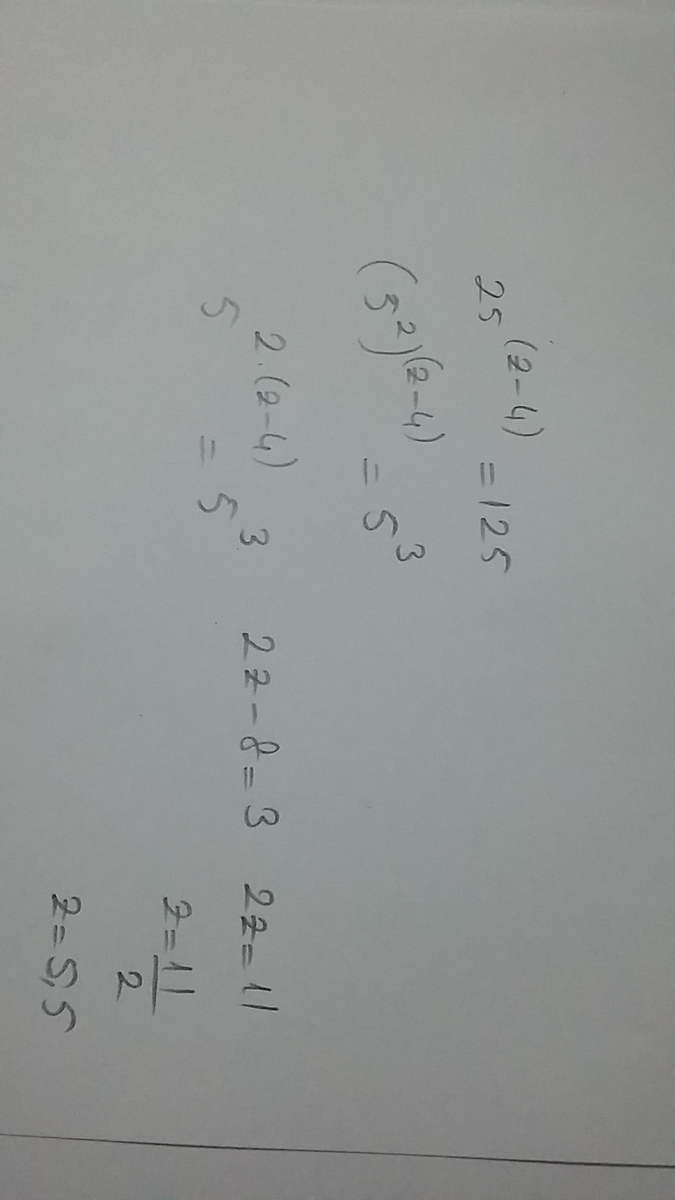 25^(z-4) = 125
(5^2)^(z-4) = 5^3
5^2·(z-4) = 5^3
2z-8=3
2z=11
z=11/2
z=5,5